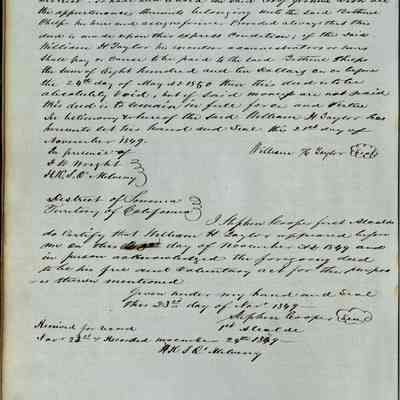 the appurtenances thereunto belonging unto the said Bethuel
Phelps his heirs and assigns forever Provided always that this
deed is made upon this express Condition; if the said
William H Taylor his executors administrators or heirs
shall pay or cause to be paid to the said Bethuel Phelps
the sum of Eight hundred and ten Dollars on or before
the 24th day of May AD 1850 then this deed is to be
absolutely Void, but if said money are not paid
this deed is to remain in full force and Virtue
In testimony whereof the said William H Taylor has
hereunto set his hand and Seal this 21st day of
November 1849.
In presence of
William H Taylor Seal
J W Wright
District of Sonoma
Territory of California
I Stephen Cooper first Alcalde
do Certify that William H Taylor appeared before
me on this day of November AD 1849 and
in person acknowledged the foregoing deed
to be his free and Voluntary act for the purpose
therein mentioned
Given under my hand and Seal
this 23rd day of Nov 1849
Stephen Cooper Seal
Received for record
1st Alcalde
Nov & Recorded 24th 1849